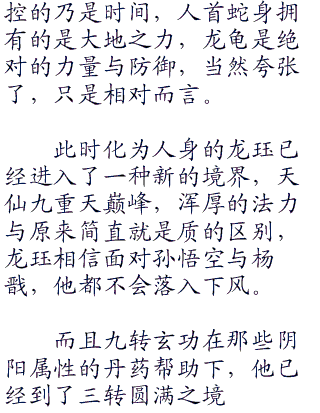 控的乃是时间，人首蛇身拥
有的是大地之力，龙龟是绝
对的力量与防御，当然夸张
了，只是相对而言。
此时化为人身的龙珏已
经进入了一种新的境界，天
仙九重天巅峰，浑厚的法力
与原来简直就是质的区别，
龙珏相信面对孙悟空与杨
戬，他都不会落入下风。
而且九转玄功在那些阴
阳属性的丹药帮助下，他已
经到了三转圆满之境